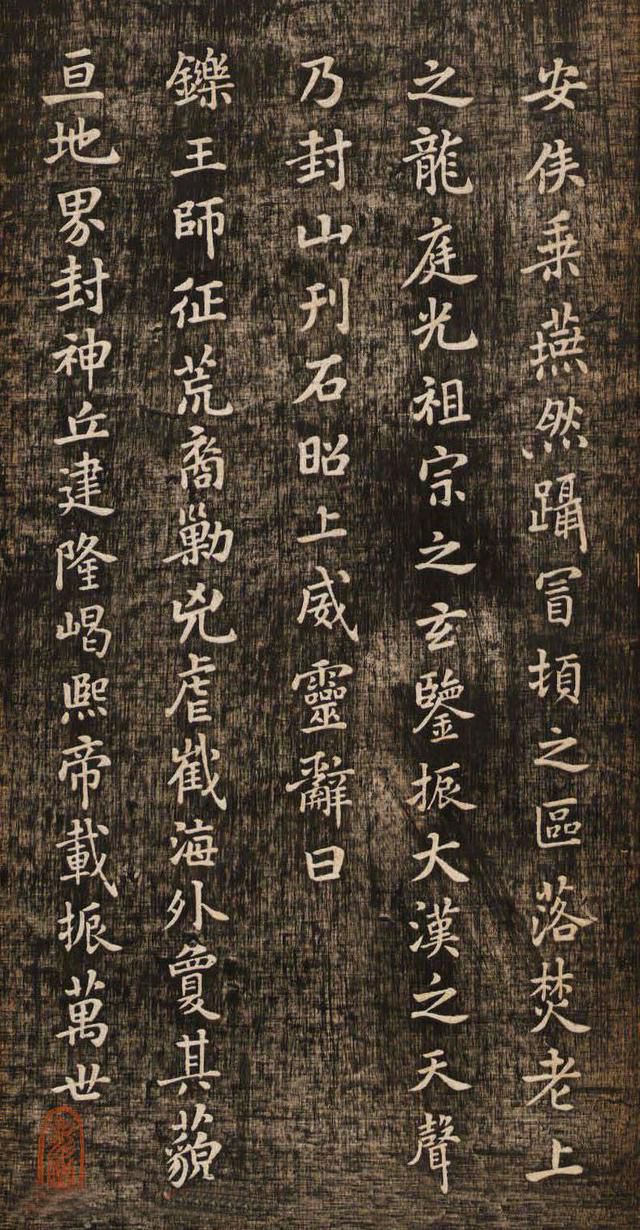 安侯乗燕然躡冒頓之區落焚老上
之龍庭光祖宗之玄鑒振大漢之天聲
乃封山刊石昭上威靈辭曰
鑠王師征荒裔勦兇虐截海外敻其藐
亘地界封神丘建隆嵑熙帝載振萬世